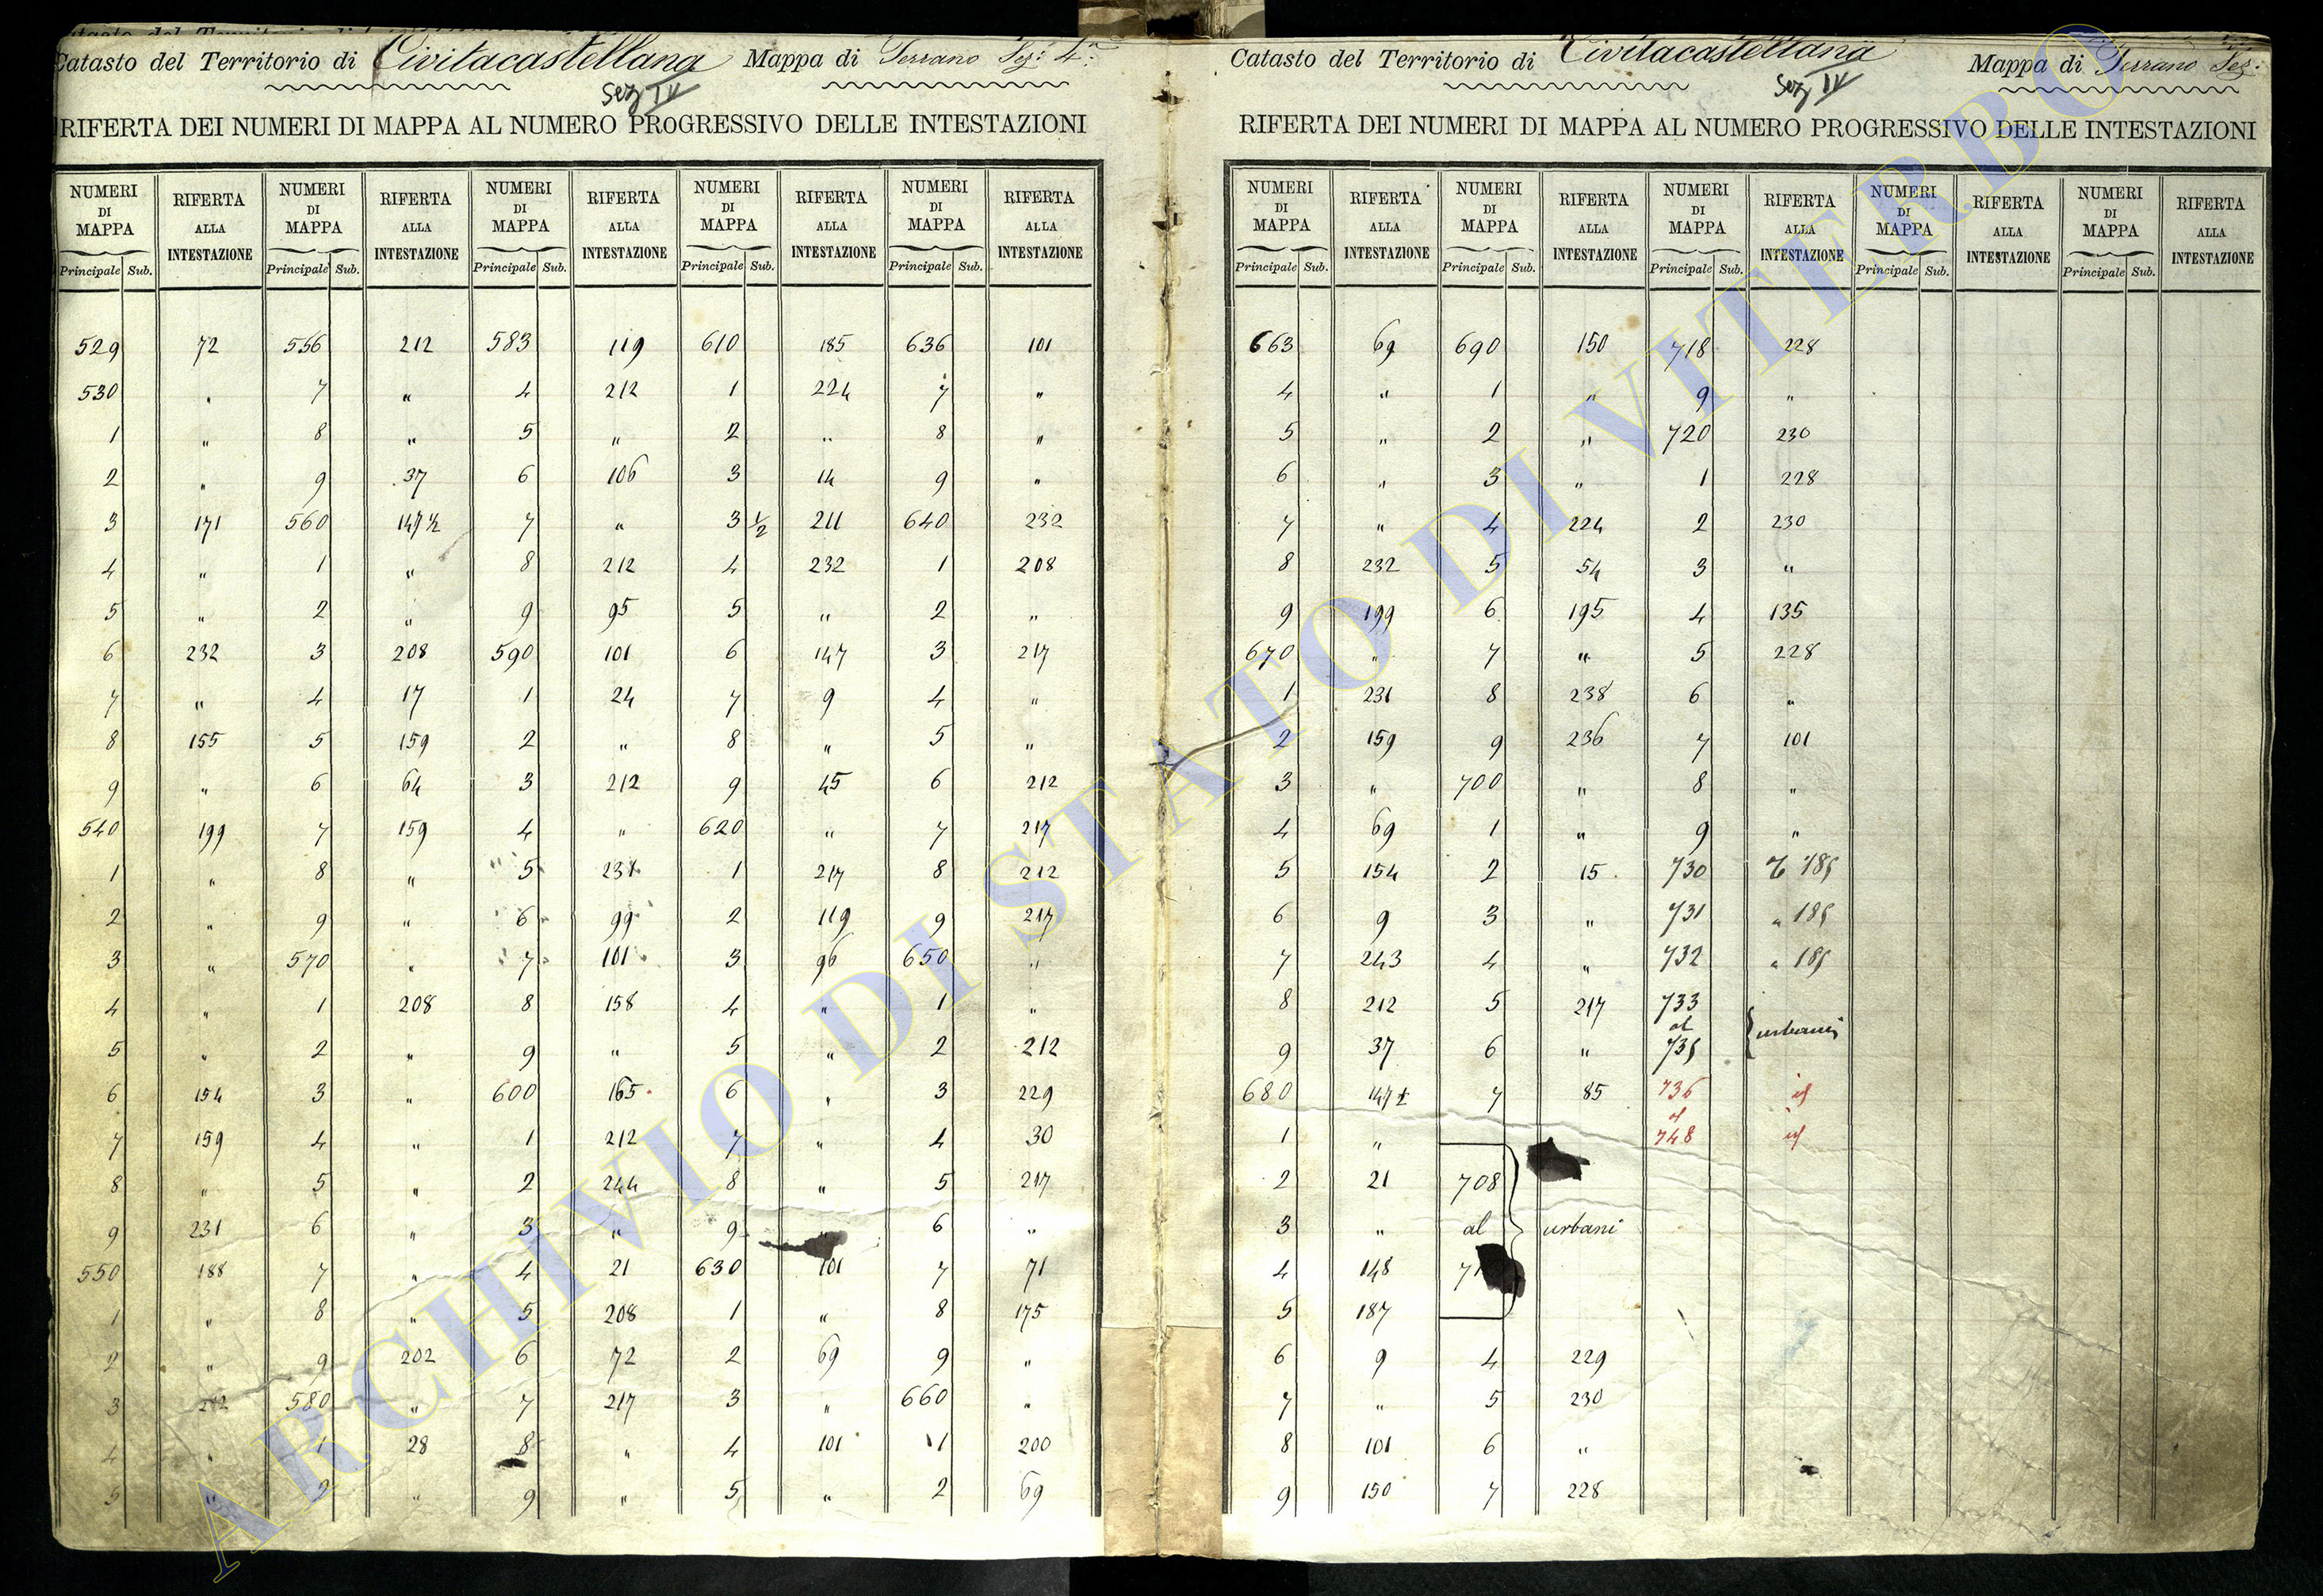 Catasto del Territorio di Civitacastellana Mappa di Terrano Sez: 4ª
Sez IV
RIFERTA DEI NUMERI DI MAPPA AL NUMERO PROGRESSIVO DELLE INTESTAZIONI
NUMERI DI MAPPA RIFERTA ALLA INTESTAZIONE NUMERI DI MAPPA RIFERTA ALLA INTESTAZIONE NUMERI DI MAPPA RIFERTA ALLA INTESTAZIONE NUMERI DI MAPPA RIFERTA ALLA INTESTAZIONE NUMERI DI MAPPA RIFERTA ALLA INTESTAZIONE
Principale Sub. Principale Sub. Principale Sub. Principale Sub. Principale Sub.
529 72 556 212 583 119 610 185 636 101
530 " 7 " 4 212 1 224 7 "
1 " 8 " 5 " 2 " 8 "
2 " 9 37 6 106 3 14 9 "
3 171 560 147 ½ 7 " 3 ½ 211 640 232
4 " 1 " 8 212 4 232 1 208
5 " 2 " 9 95 5 " 2 "
6 232 3 208 590 101 6 147 3 217
7 " 4 17 1 24 7 9 4 "
8 155 5 159 2 " 8 " 5 "
9 " 6 64 3 212 9 45 6 212
540 199 7 159 4 " 620 " 7 217
1 " 8 " 5 231 1 217 8 212
2 " 9 " 6 99 2 119 9 217
3 " 570 " 7 101 3 96 650 "
4 " 1 208 8 158 4 " 1 "
5 " 2 " 9 " 5 " 2 212
6 154 3 " 600 165 6 " 3 229
7 159 4 " 1 212 7 " 4 30
8 " 5 " 2 244 8 " 5 217
9 231 6 " 3 " 9 " 6 "
550 188 7 " 4 21 630 101 7 71
1 " 8 " 5 208 1 " 8 175
2 " 9 202 6 72 2 69 9 "
3 212 580 " 7 217 3 " 660 "
4 " 1 28 8 " 4 101 1 200
5 " 2 " 9 " 5 " 2 69
Catasto del Territorio di Civitacastellana Mappa di Terrano Sez:
Sez IV
RIFERTA DEI NUMERI DI MAPPA AL NUMERO PROGRESSIVO DELLE INTESTAZIONI
NUMERI DI MAPPA RIFERTA ALLA INTESTAZIONE NUMERI DI MAPPA RIFERTA ALLA INTESTAZIONE NUMERI DI MAPPA RIFERTA ALLA INTESTAZIONE NUMERI DI MAPPA RIFERTA ALLA INTESTAZIONE NUMERI DI MAPPA RIFERTA ALLA INTESTAZIONE
Principale Sub. Principale Sub. Principale Sub. Principale Sub. Principale Sub.
663 69 690 150 718 228
4 " 1 " 9 "
5 " 2 " 720 230
6 " 3 " 1 228
7 " 4 224 2 230
8 232 5 54 3 "
9 199 6 195 4 135
670 " 7 " 5 228
1 231 8 238 6 "
2 159 9 236 7 101
3 " 700 " 8 "
4 69 1 " 9 "
5 154 2 15 730 185
6 9 3 " 731 " 185
7 243 4 " 732 " 185
8 212 5 217 733
al urbani
9 37 6 " 735
680 147 ½ 7 85 736 id
al
1 " 748 id
2 21 708
3 " al urbani
4 148 71
5 187
6 9 4 229
7 " 5 230
8 101 6 "
9 150 7 228
ARCHIVIO DI STATO DI VITERBO